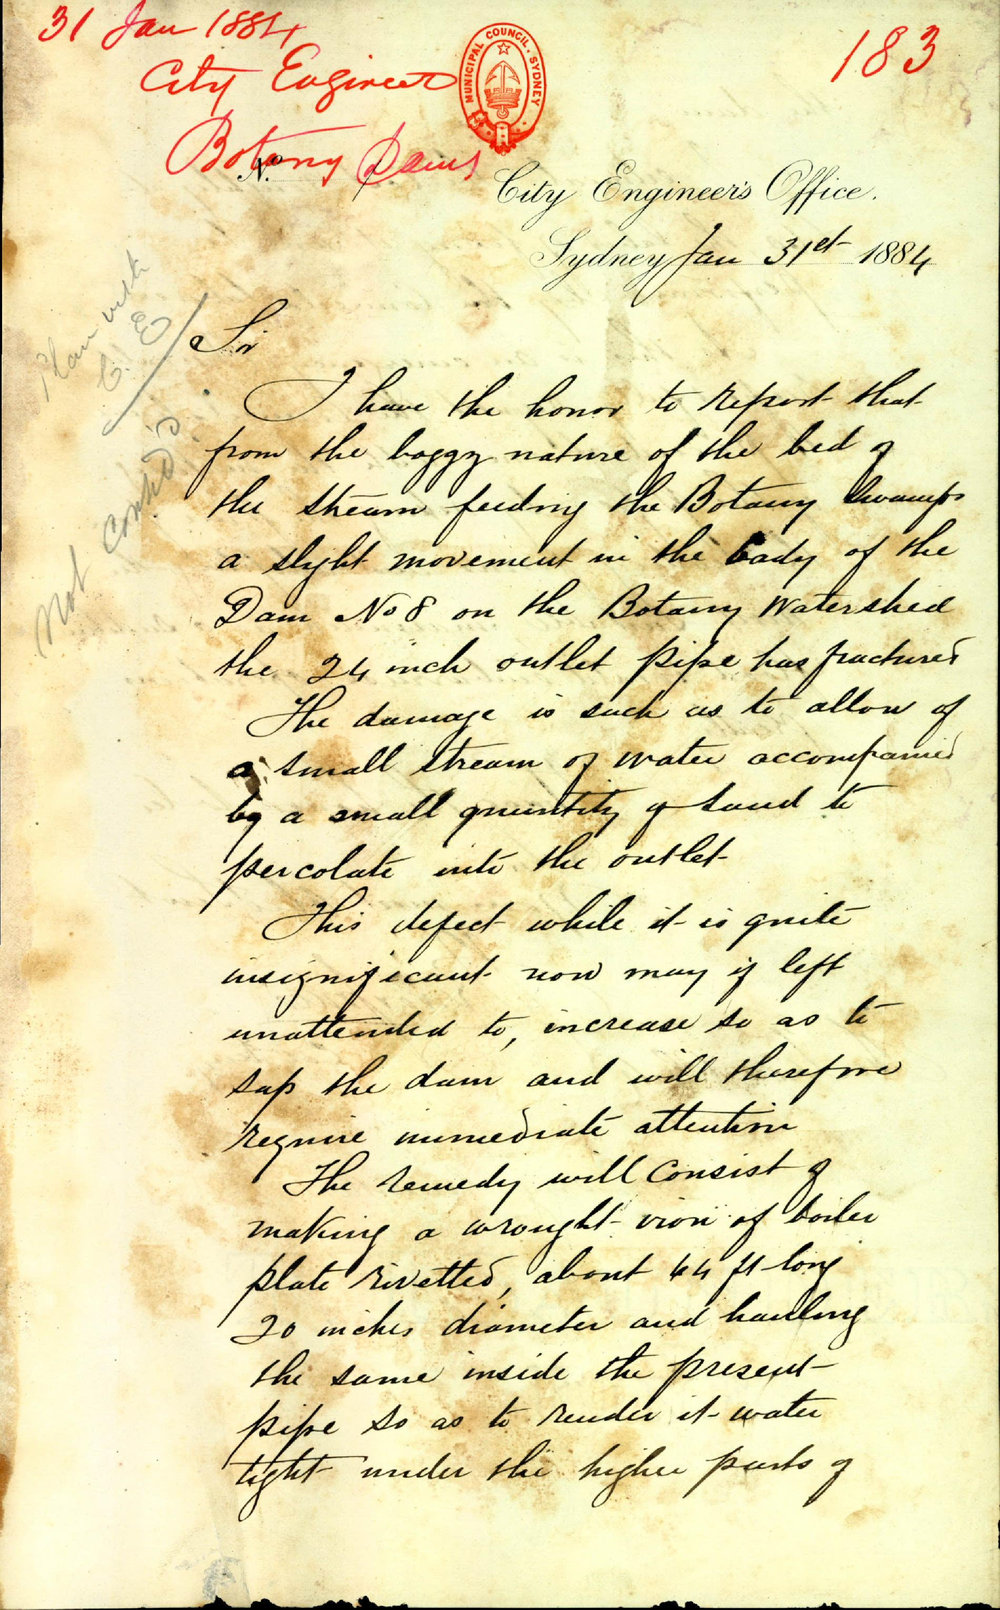 31 Jan 1884
City Engineer
Botany Dams
183
MUNICIPAL COUNCIL. SYDNEY
No.
City Engineer's Office.
Sydney Jan 31st 1884
Plan with
C. E
Not Consid'd
Sir
I have the honor to report that
from the boggy nature of the bed of
the stream feeding the Botany Swamps
a slight movement in the body of the
Dam No 8 on the Botany Watershed
the 24 inch outlet pipe has fractured
The damage is such as to allow of
a small stream of water accompanied
by a small quantity of sand to
percolate into the outlet
This defect while it is quite
insignificant now may if left
unattended to, increase so as to
sap the dam and will therefore
require immediate attention
The remedy will consist of
making a wrought iron of boiler
plate rivetted, about 44 ft long
20 inches diameter and hauling
the same inside the present
pipe so as to render it water
tight under the higher parts of